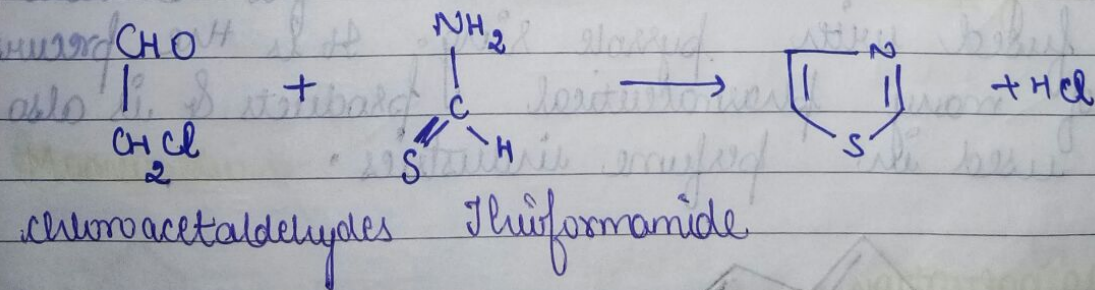 CHO + NH2 N + HCl
C
CH2Cl S H S
chloroacetaldehydes Thioformamide